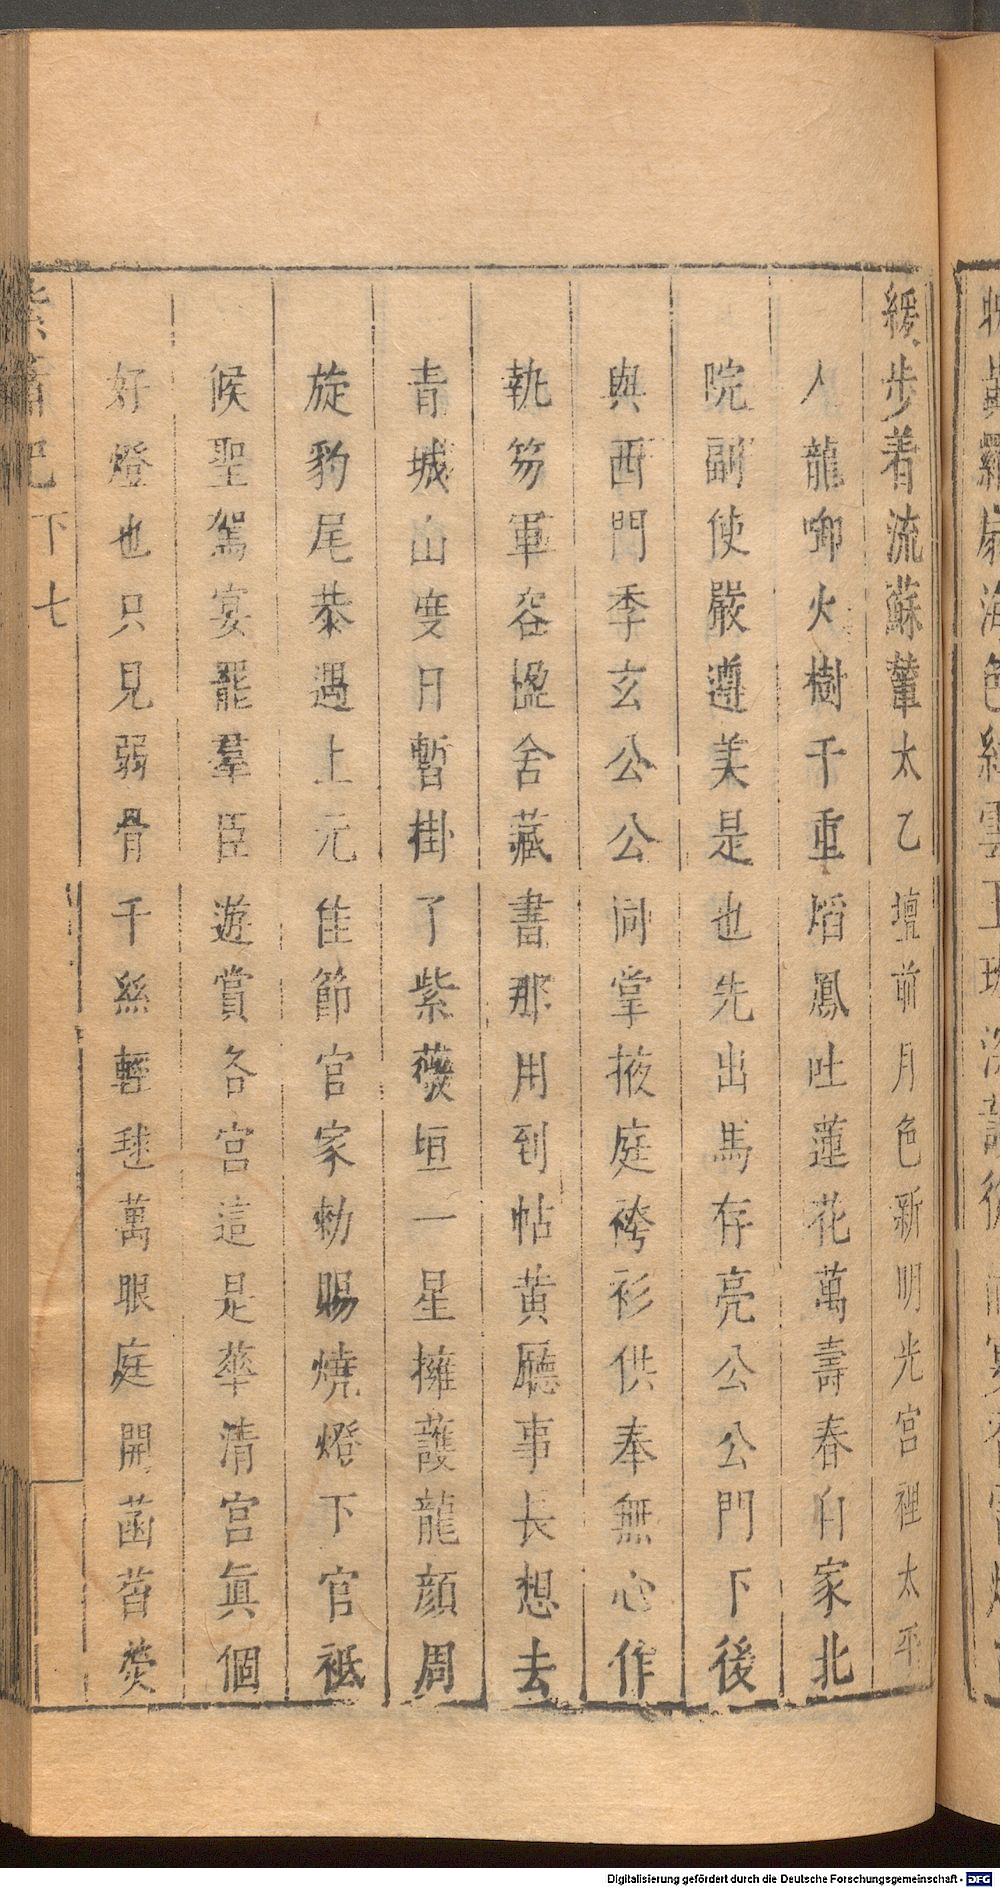 緩步着流蘇輦太乙壇前月色新明光宮裡太平
人龍啣火樹千重熖鳳吐蓮花萬壽春自家北
院副使嚴遵美是也先出馬存亮公公門下後
與西門季玄公公同掌掖庭袴衫供奉無心作
執笏軍容楹舍藏書那用到帖黃廳事長想去
青城山隻日暫掛了紫薇垣一星擁護龍顏周
旋豹尾恭遇上元佳節官家勅賜燒燈下官祗
候聖駕宴罷羣臣遊賞各宮這是華清宮眞個
好燈也只見弱骨千絲輕毬萬眼庭開菡萏熒
下 七
Digitalisierung gefördert durch die Deutsche Forschungsgemeinschaft - DFG